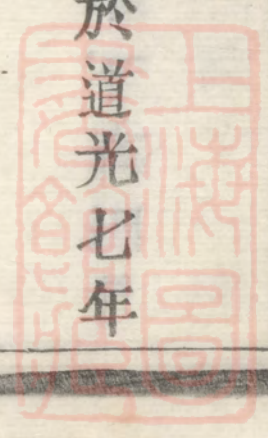 於道光七年
上海圖書館藏